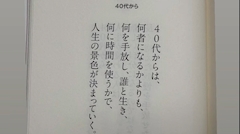 40代から
40代からは、
何者になるかよりも、
何を手放し、誰と生き、
何に時間を使うかで、
人生の景色が決まっていく。